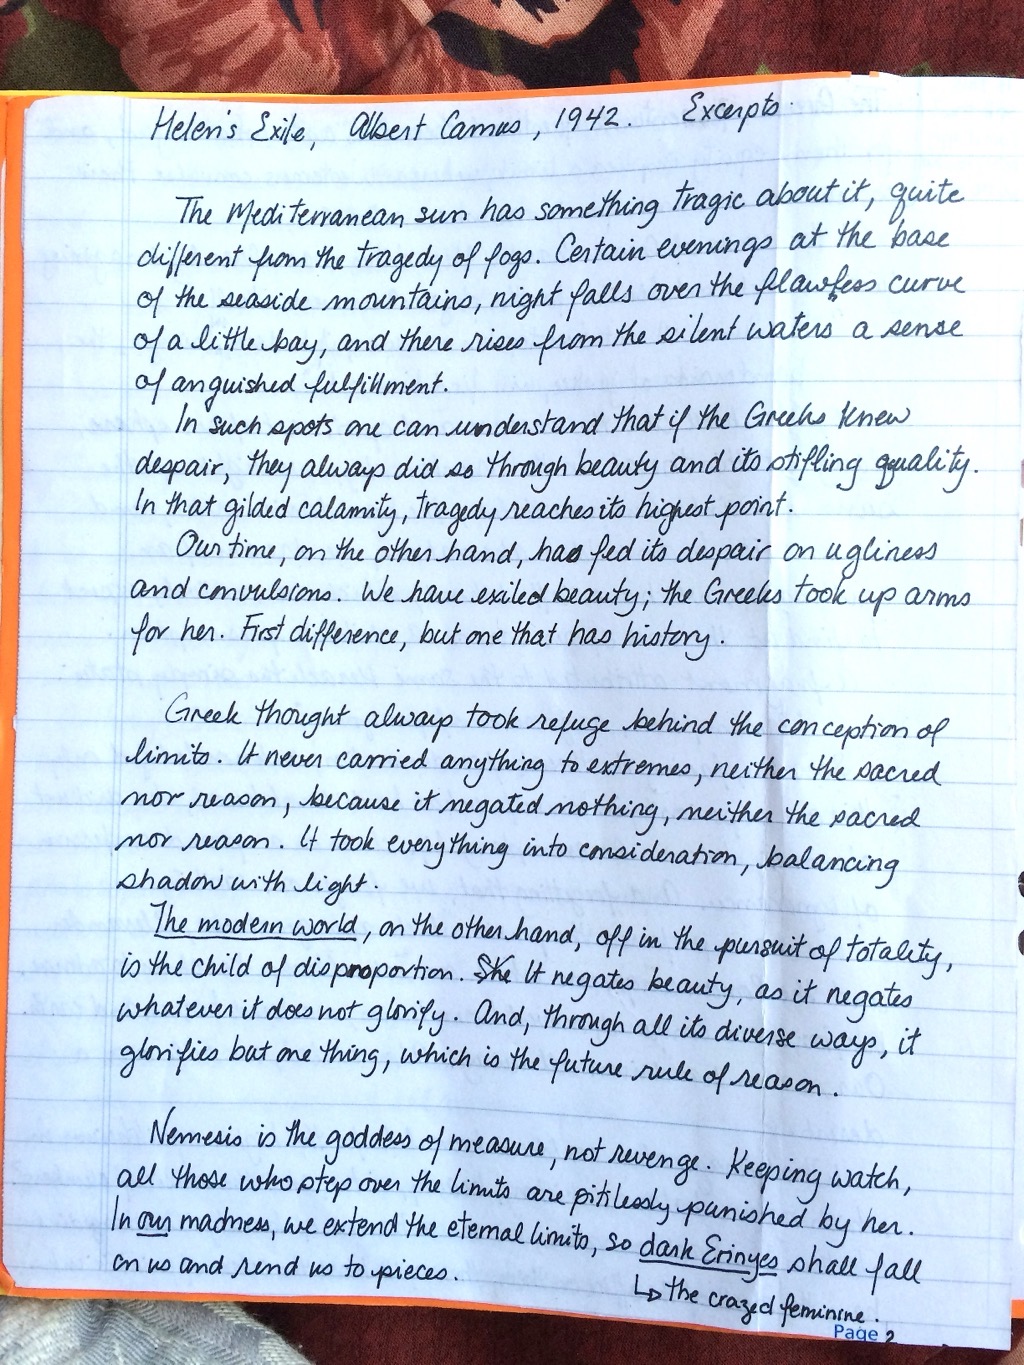 Helen's Exile, Albert Camus, 1942. Excerpts.
The Mediterranean sun has something tragic about it, quite
different from the tragedy of fogs. Certain evenings at the base
of the seaside mountains, night falls over the flawless curve
of a little bay, and there rises from the silent waters a sense
of anguished fulfillment.
In such spots one can understand that if the Greeks knew
despair, they always did so through beauty and its stifling quality.
In that gilded calamity, tragedy reaches its highest point.
Our time, on the other hand, has fed its despair on ugliness
and convulsions. We have exiled beauty; the Greeks took up arms
for her. First difference, but one that has history.
Greek thought always took refuge behind the conception of
limits. It never carried anything to extremes, neither the sacred
nor reason, because it negated nothing, neither the sacred
nor reason. It took everything into consideration, balancing
shadow with light.
The modern world, on the other hand, off in the pursuit of totality,
is the child of disproportion. She It negates beauty, as it negates
whatever it does not glorify. And, through all its diverse ways, it
glorifies but one thing, which is the future rule of reason.
Nemesis is the goddess of measure, not revenge. Keeping watch,
all those who step over the limits are pitilessly punished by her.
In our madness, we extend the eternal limits, so dark Erinyes shall fall
on us and rend us to pieces.
↳ the crazed feminine.
Page 2